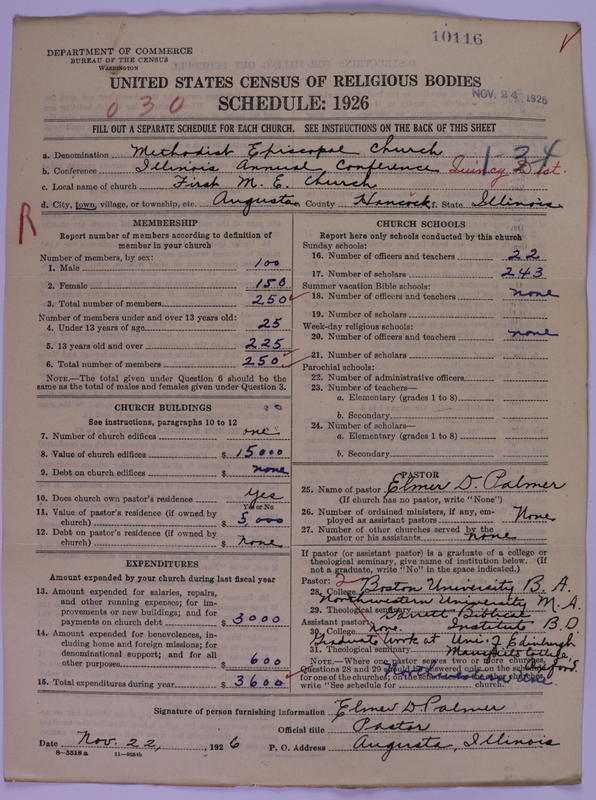 10116
DEPARTMENT OF COMMERCE
BUREAU OF THE CENSUS
WASHINGTON
UNITED STATES CENSUS OF RELIGIOUS BODIES
NOV. 24 1926
030
SCHEDULE: 1926
FILL OUT A SEPARATE SCHEDULE FOR EACH CHURCH. SEE INSTRUCTIONS ON THE BACK OF THIS SHEET
1-34
a. Denomination Methodist Episcopal Church
b. Conference Illinois Annual Conference Quincy Dist.
c. Local name of church First M. E. Church
d. City, town, village, or township, etc. Augusta County Hancock f. State Illinois
R
MEMBERSHIP
Report number of members according to definition of
member in your church
Number of members, by sex:
1. Male 100
2. Female 150
3. Total number of members 250
Number of members under and over 13 years old:
4. Under 13 years of age 25
5. 13 years old and over 225
6. Total number of members 250
NOTE.—The total given under Question 6 should be
same as the total of males and females given under Question 3.
CHURCH BUILDINGS
See instructions, paragraphs 10 to 12
7. Number of church edifices one
8. Value of church edifices $ 15000
9. Debt on church edifices $ none
10. Does church own pastor's residence Yes
Yes or No
11. Value of pastor's residence (if owned by
church) $ 5,000
12. Debt on pastor's residence (if owned by
church) $ none
EXPENDITURES
Amount expended by your church during last fiscal year
13. Amount expended for salaries, repairs,
and other running expenses; for im-
provements or new buildings; and for
payments on church debt $ 3000
14. Amount expended for benevolences, in-
cluding home and foreign missions; for
denominational support; and for all
other purposes $ 600
15. Total expenditures during year $ 3600
CHURCH SCHOOLS
Report here only schools conducted by this church
Sunday schools:
16. Number of officers and teachers 22
17. Number of scholars 243
Summer vacation Bible schools:
18. Number of officers and teachers none
19. Number of scholars
Week-day religious schools:
20. Number of officers and teachers none
21. Number of scholars
Parochial schools:
22. Number of administrative officers
23. Number of teachers—
a. Elementary (grades 1 to 8)
b. Secondary
24. Number of scholars—
a. Elementary (grades 1 to 8)
b. Secondary
PASTOR
25. Name of pastor Elmer D. Palmer
(If church has no pastor, write "None")
26. Number of ordained ministers, if any, em-
ployed as assistant pastors None
27. Number of other churches served by the
pastor or his assistants none
If pastor (or assistant pastor) is a graduate of a college or
theological seminary, give name of institution below. (If
not a graduate, write "No" in the space indicated.)
Pastor: 2
28. College Boston University B. A.
Northwestern University M. A.
29. Theological seminary Garrett Biblical
Assistant pastor: Institute B. D.
30. College None
Graduate work at Uni. of Edinburgh
31. Theological seminary Mansfield College, Oxford
NOTE.—Where one pastor serves two or more churches,
Questions 28 and 29 should be answered only on the schedule
for one of the churches; on the schedules for the other churches,
write "See schedule for church."
Signature of person furnishing information Elmer D. Palmer
Official title Pastor
Date Nov. 22, 1926 P. O. Address Augusta, Illinois
8—5518a